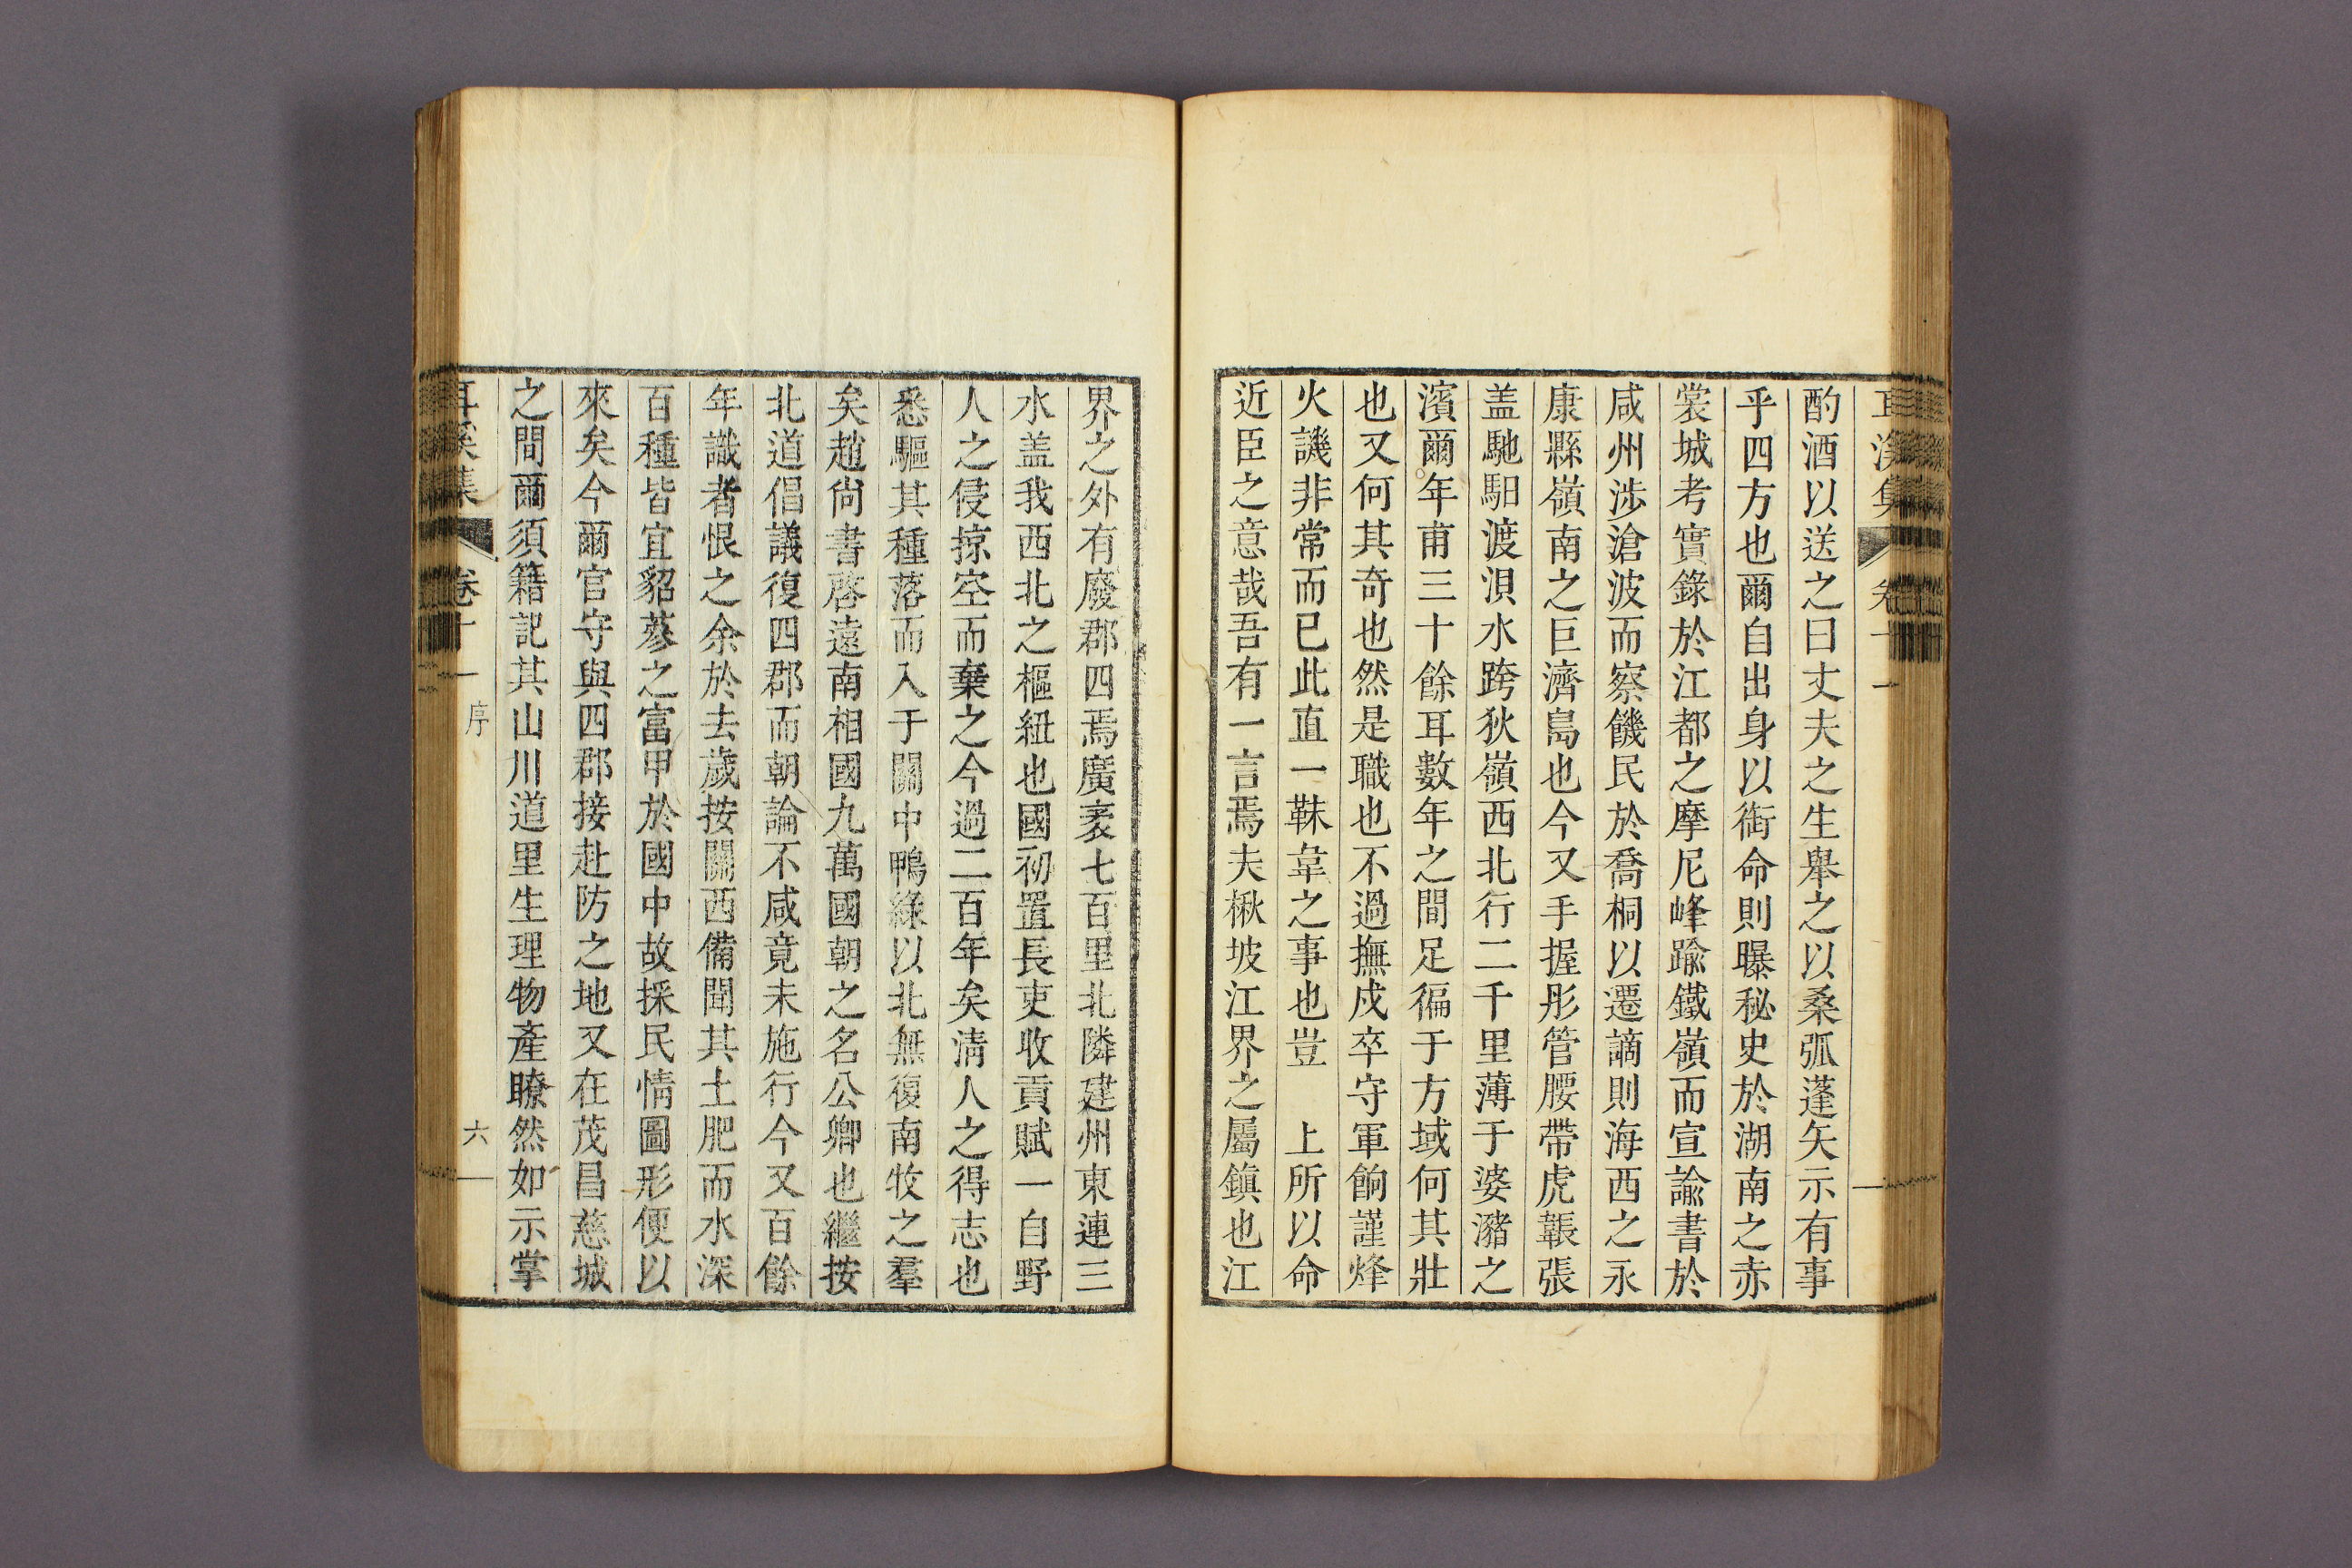 耳溪集 卷十一
酌酒以送之曰丈夫之生擧之以桑弧蓬矢示有事
乎四方也爾自出身以銜命則曝秘史於湖南之赤
裳城考實錄於江都之摩尼峰踰鐵嶺而宣諭書於
咸州涉滄波而察饑民於喬桐以遷謫則海西之永
康縣嶺南之巨濟島也今又手握彤管腰帶虎韔張
盖馳馹渡浿水跨狄嶺西北行二千里薄于婆瀦之
濱爾年甫三十餘耳數年之間足徧于方域何其壯
也又何其奇也然是職也不過撫戍卒守軍餉謹烽
火譏非常而已此直一韎韋之事也豈 上所以命
近臣之意哉吾有一言焉夫楸坡江界之屬鎭也江
界之外有廢郡四焉廣袤七百里北隣建州東連三
水盖我西北之樞紐也國初置長吏收貢賦一自野
人之侵掠空而棄之今過二百年矣淸人之得志也
悉驅其種落而入于關中鴨綠以北無復南牧之羣
矣趙尙書啓遠南相國九萬國朝之名公卿也繼按
北道倡議復四郡而朝論不咸竟未施行今又百餘
年識者恨之余於去歲按關西備聞其土肥而水深
百種皆宜貂蔘之富甲於國中故採民情圖形便以
來矣今爾官守與四郡接赴防之地又在茂昌慈城
之間爾須籍記其山川道里生理物產瞭然如示掌
耳溪集 卷十一 序 六